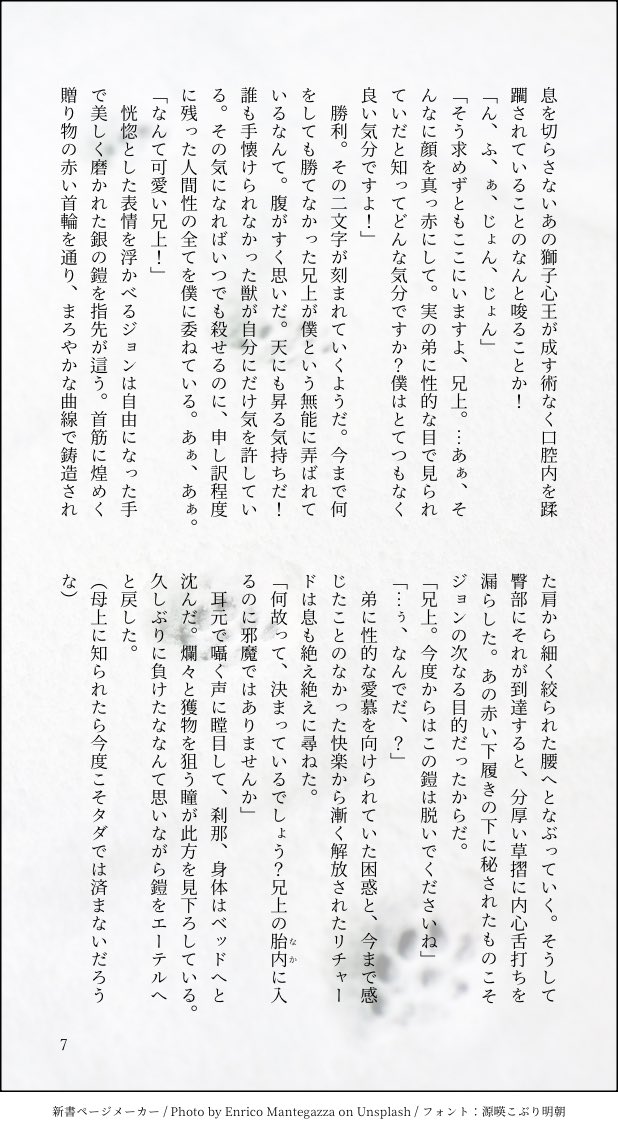 息を切らさないあの獅子心王が成す術なく口腔内を蹂
躙されていることのなんと唆ることか！
「ん、ふ、ぁ、じょん、じょん」
「そう求めずともここにいますよ、兄上。…あぁ、そ
んなに顔を真っ赤にして。実の弟に性的な目で見られ
ていだと知ってどんな気分ですか？僕はとてつもなく
良い気分ですよ！」
勝利。その二文字が刻まれていくようだ。今まで何
をしても勝てなかった兄上が僕という無能に弄ばれて
いるなんて。腹がすく思いだ。天にも昇る気持ちだ！
誰も手懐けられなかった獣が自分にだけ気を許してい
る。その気になればいつでも殺せるのに、申し訳程度
に残った人間性の全てを僕に委ねている。あぁ、あぁ。
「なんて可愛い兄上！」
恍惚とした表情を浮かべるジョンは自由になった手
で美しく磨かれた銀の鎧を指先が這う。首筋に煌めく
贈り物の赤い首輪を通り、まろやかな曲線で鋳造され
た肩から細く絞られた腰へとなぶっていく。そうして
臀部にそれが到達すると、分厚い草摺に内心舌打ちを
漏らした。あの赤い下履きの下に秘されたものこそ
ジョンの次なる目的だったからだ。
「兄上。今度からはこの鎧は脱いでくださいね」
「…ぅ、なんでだ、？」
弟に性的な愛慕を向けられていた困惑と、今まで感
じたことのなかった快楽から漸く解放されたリチャー
ドは息も絶え絶えに尋ねた。
「何故って、決まっているでしょう？兄上の胎内に入
なか
るのに邪魔ではありませんか」
耳元で囁く声に瞠目して、刹那、身体はベッドへと
沈んだ。爛々と獲物を狙う瞳が此方を見下ろしている。
久しぶりに負けたななんて思いながら鎧をエーテルへ
と戻した。
（母上に知られたら今度こそタダでは済まないだろう
な）
7
新書ページメーカー / Photo by Enrico Mantegazza on Unsplash / フォント：源暎こぶり明朝